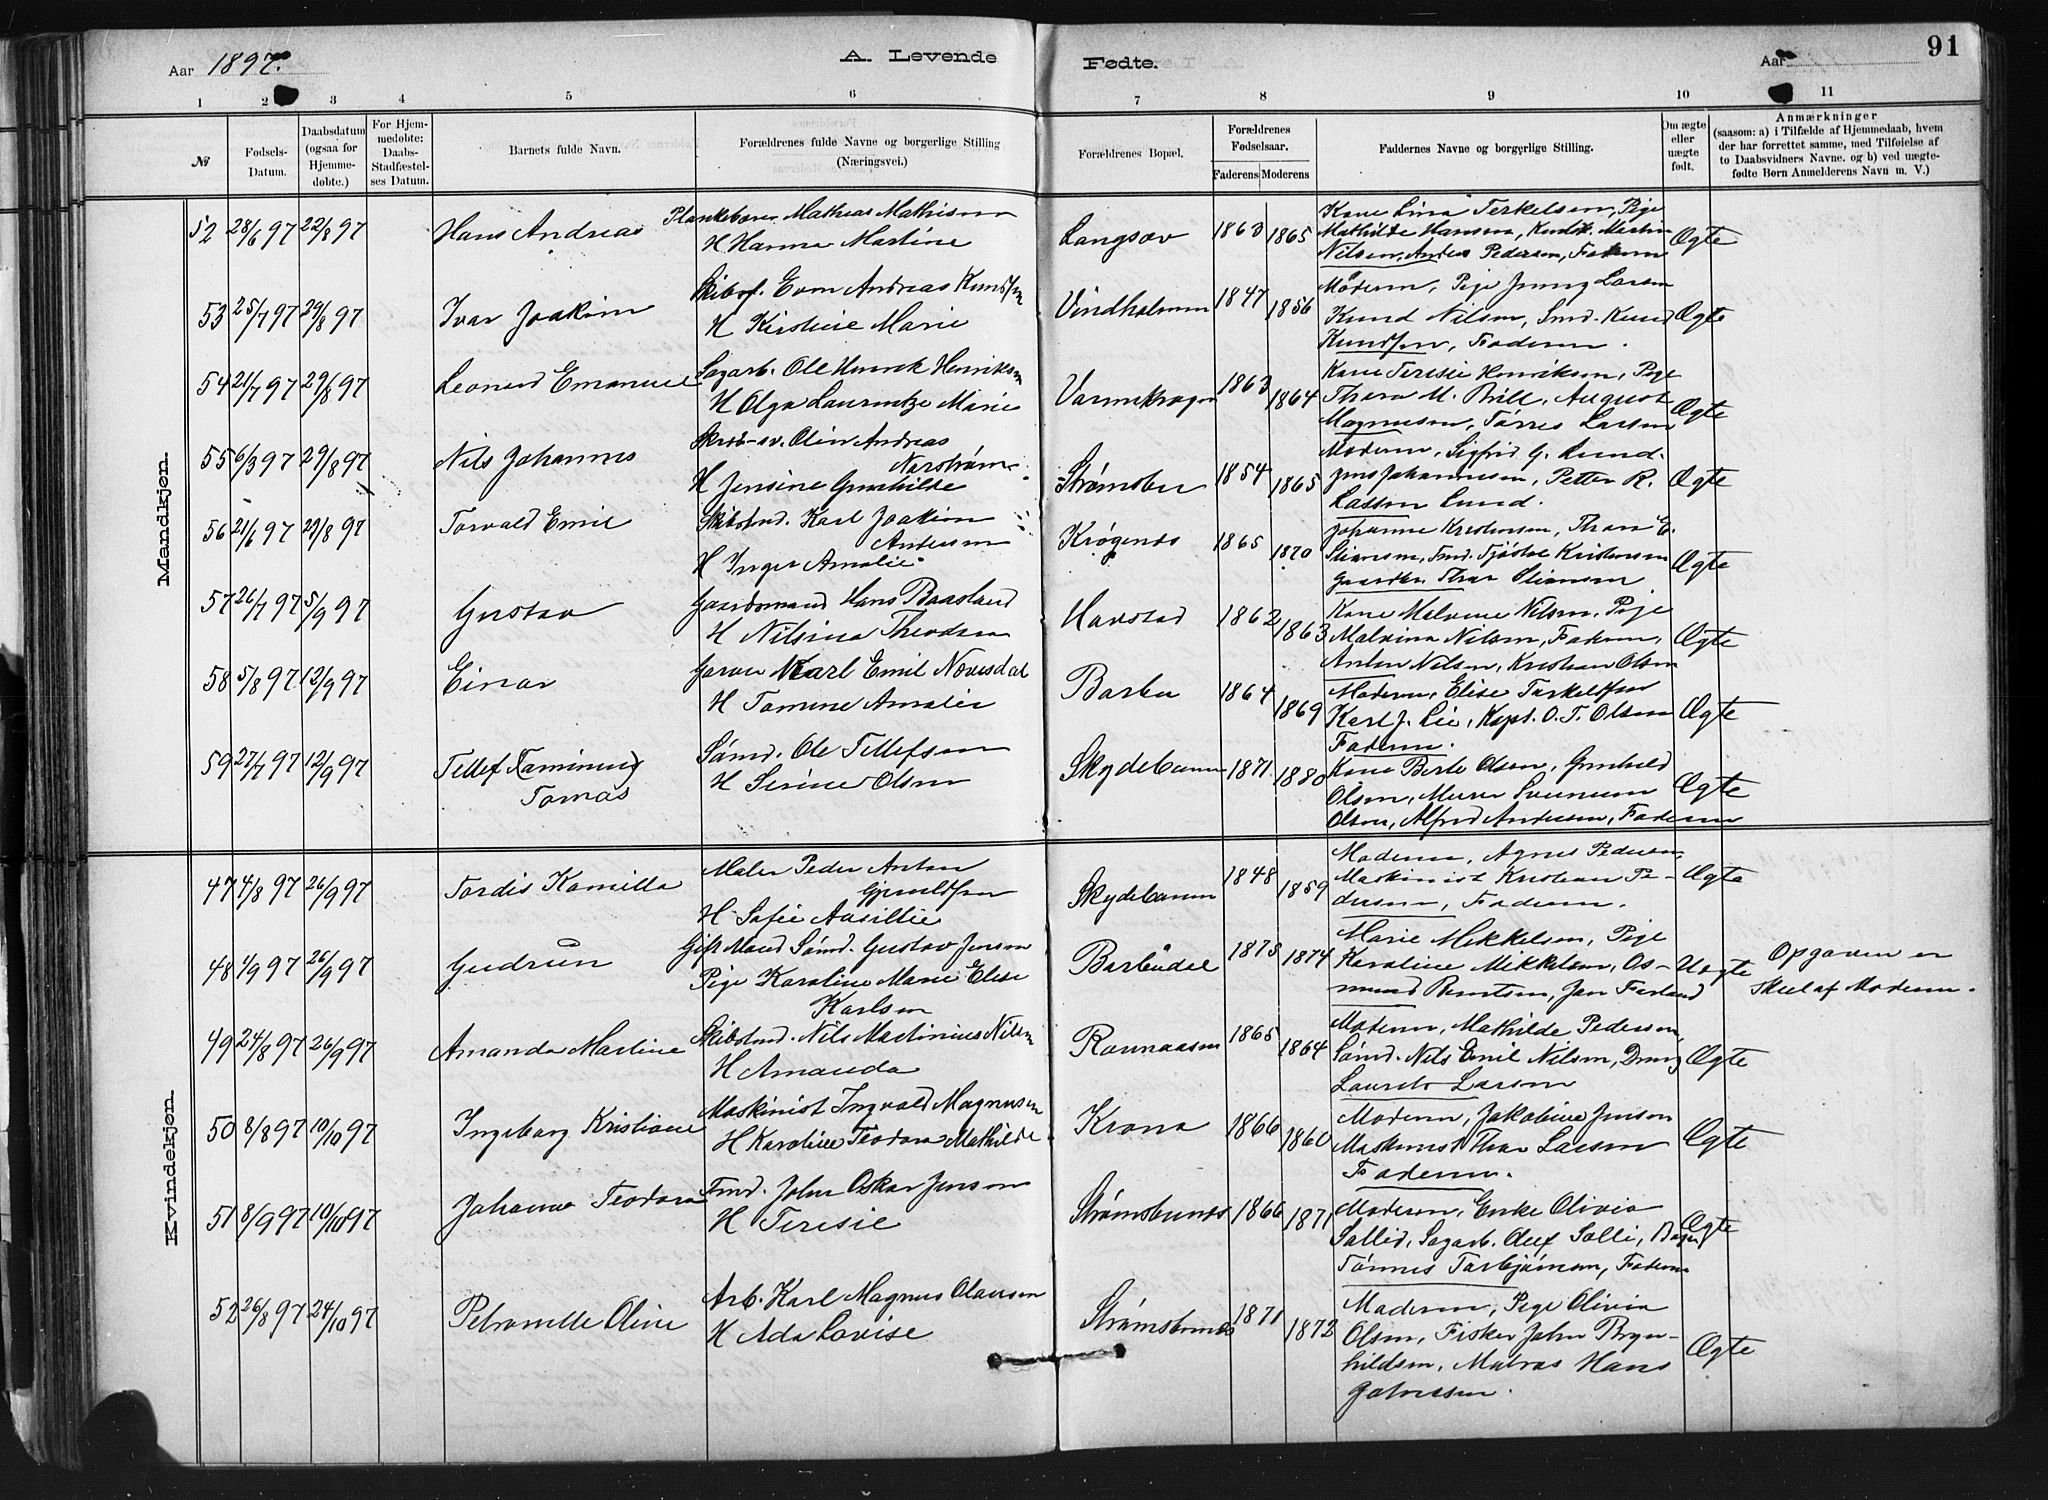 91
Aar 1897.
A. Levende
Fødte.
Aar
1 2 3 4 5 6 7 8 9 10 11
№
Fødsels-
Datum.
Daabsdatum
(ogsaa for
Hjemme-
døbte.)
For Hjem-
medøbte:
Daabs-
Stadfæstel-
ses Datum.
Barnets fulde Navn.
Forældrenes fulde Navne og borgerlige Stilling
(Næringsvei.)
Forældrenes Bopæl.
Forældrenes
Fødselsaar.
Faderens Moderens
Faddernes Navne og borgerlige Stilling.
Om ægte
eller
uægte
født.
Anmærkninger
(saasom: a) i Tilfælde af Hjemmedaab, hvem
der har forrettet samme, med Tilføielse af
to Daabsvidners Navne. og b) ved uægte-
fødte Børn Anmelderens Navn m. V.)
Mandkjøn.
52 28/6 97 22/8 97 Hans Andreas Mathias Mathisen
H Hanna Martine
Langsæv 1863 1865
Kone Lina Terkelsen, Pige
Mathilde Hansen, Martin
Nilsen, Anders Pedersen, Faderen
Ægte
53 25/7 97 29/8 97 Ivar Joakim
Even Andreas Knudsen
H Kirstine Marie
Vindholmen 1847 1856
Moderen, Pige Jenny Larsen
Knud Nilsen, Smd. Knud
Knudsen, Faderen.
Ægte
54 21/7 97 29/8 97 Leonard Emanuel
Sagarb. Ole Henrik Henriksen
H Olga Laurentze Marie
1863 1864
Kone Teresie Henriksen, Pige
Thora M. Brill, August
Magnusen, Tørres Larsen
Ægte
55 6/3 97 29/8 97 Nils Johannes
Olin Andreas
Norstrøm
H Jensine Gunhilde
Strømsbu 1854 1865
Moderen, Sigfrid G. Lund.
Jens Johannesen, Petter R.
Lassen Lund.
Ægte
56 21/6 97 29/8 97 Torvald Emil
Skibstmd. Karl Joakim
Andersen
H Inger Amalie
Krøgenes 1865 1870
Johanne Kristensen, Thone E.
Stiansen, Tmd. Tjøstov Kristensen
Thor Stiansen
Ægte
57 26/7 97 5/9 97 Gustav
Gaardmand Hans Baasland
H Nilsine Theodora
Havstad 1862 1863
Kone Malvine Nilsen, Pige
Malvina Nilsen, Faderen,
Anton Nilsen, Kristian Olsen
Ægte
58 5/8 97 12/9 97 Einar
Garver Karl Emil Novesdal
H Tomine Amalie
Barbu 1864 1869
Moderen, Elise Terkelsen
Karl J. Lie, Kapt. O. T. Olsen
Faderen.
Ægte
59 27/7 97 12/9 97 Tellef
Tomas
Sømd. Ole Tellefsen
H Serine Olsen
Skydebanen 1871 1880
Kone Berte Olsen, Gunhild
Olsen, Murer
Olsen, Alfred Andersen, Faderen
Ægte
Kvindekjøn.
47 4/8 97 26/9 97 Tordis Kamilla
Maler Peder Anton
Gjeruldsen
H Sofie Aasillie
Skydebanen 1848 1859
Moderen, Agnes Pedersen,
Maskinist Kristian Pe-
dersen, Faderen.
Ægte
48 1/9 97 26/9 97 Gudrun
Gift Mand Sømd. Gustav Jensen
Pige Karoline Marie Elise
Karlsen
Barbudal 1873 1874
Marie Mikkelsen, Pige
Karoline Mikkelsen, Os-
mund Berntsen, Jan
Uægte
Opgaven er
Skeet af Moderen.
49 24/8 97 26/9 97 Amanda Martine
Skibstmd. Nils Martinius Nilsen
H Amanda
Ravnaasen 1865 1864
Moderen, Mathilde Pedersen,
Sømd. Nils Emil Nilsen, Dreng
Laurits Larsen
Ægte
50 8/8 97 10/10 97 Ingeborg Kristiane
Maskinist Ingvald Magnusen
H Karoline Teodora Mathilde
Krona 1866 1860
Moderen, Jakobine Jensen
Maskinist Thor Larsen
Faderen.
Ægte
51 8/9 97 10/10 97 Johanne Teodora
Tmd. John Oskar Jensen
H Teresie
Strømsbunes 1866 1871
Moderen, Enke Olivia
Sollid, Sagarb. Oluf Solli,
Tønnes Torbjørnsen, Faderen
Ægte
52 26/8 97 24/10 97 Petronelle Oline
Arb. Karl Magnus Olausen
H Ada Lovise
Strømsbunes 1871 1872
Moderen, Pige Olivia
Olsen, Fisker John Bryn-
hildsen, Matros Hans
Ægte